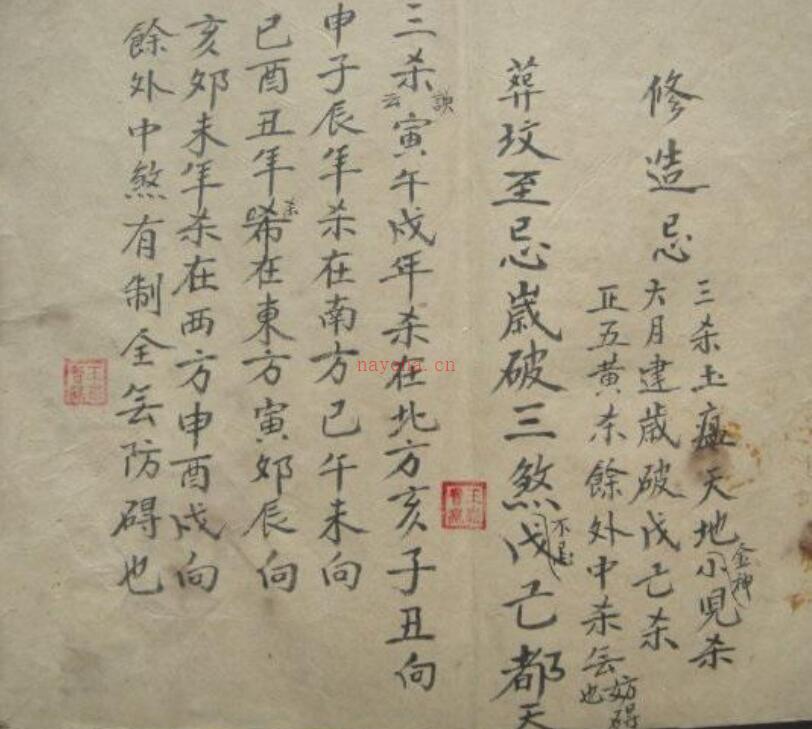 修造忌
三杀土瘟天地金神小児杀
大月建歲破戊己杀
正五黄杀餘外中杀無妨碍也
葬坟至忌歲破三煞戊己都天
不忌
三杀訣云寅午戌年杀在北方亥子丑向
申子辰年杀在南方巳午未向
巳酉丑年杀在東方寅卯辰向
亥卯未年杀在西方申酉戌向
餘外中煞有制全無防碍也
nayona.cn